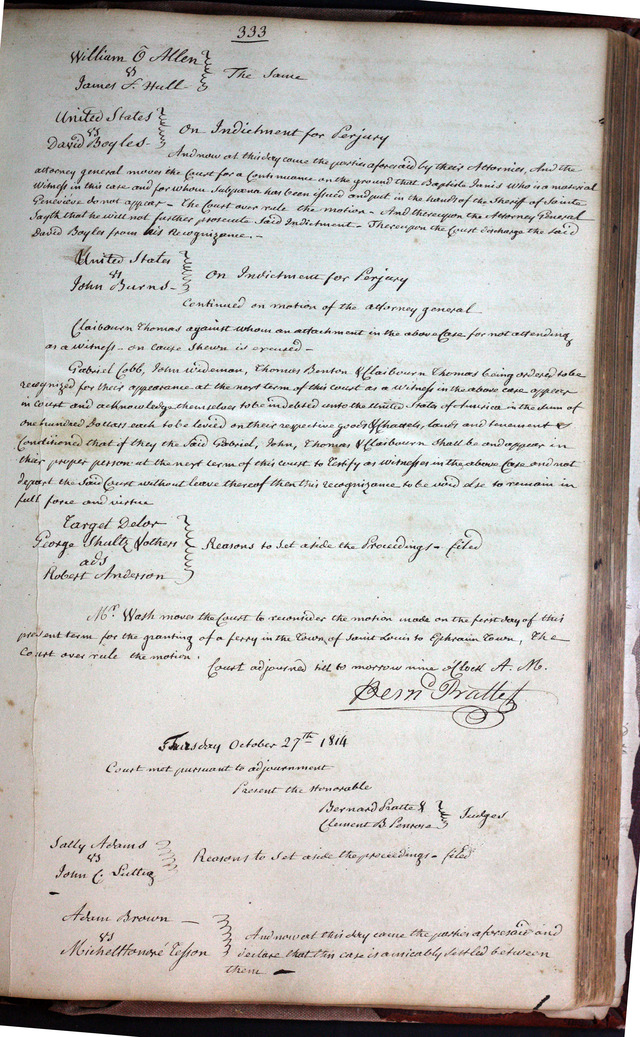 333
William O Allen
vs
James F. Hull
The Same
United States
vs
David Boyles
On Indictment for Perjury
And now at this day came the parties aforesaid by their Attornies, And the
attorney general moves the Court for a Continuance on the ground that Baptiste Innis who is a material
Witness in this case and for whom Subpœna has been issued and put in the hands of the Sheriff of Sainte
Genevieve do not appear – the Court over rule the motion – And thereupon the Attorney General
Sayth that he will not further prosecute Said Indictment – Thereupon the Court discharge the said
David Boyles from his Recognizance. –
United States
vs
John Burns –
On Indictment for Perjury
Continued on motion of the attorney general
Claibourn Thomas against whom an attachment in the above Case for not attending
as a witness – on cause shewn is excused –
Gabriel Cobb, John Wideman, Thomas Benton & Claibourn Thomas being ordered to be
recognized for their appearance at the next term of this court as a Witness in the above case appear
in court and acknowledge themselves to be indebted unto the United States of America in the sum of
one hundred Dollars each to be levied on their respective goods & chattels, lands and tenements &
Conditioned that if they the Said Gabriel, John, Thomas & Claibourn shall be and appear in
their proper person at the next term of this court to Testify as Witnesses in the above Case and not
depart the Said Court without leave thereof then this recognizance to be void else to remain in
full force and virtue
Target Delor
George Shultz & others
ads
Robert Anderson
Reasons to Set aside the Proceedings – filed
Mr. Wash moves the Court to reconsider the motion made on the first day of this
present term for the granting of a ferry in the Town of Saint Louis to Ephraim Town, The
Court over rule the motion.
Court adjourned till to morrow nine oClock A. M.
Bernd Pratte
Thursday October 27th 1814
Court met pursuant to adjournment
Present the Honorable
Bernard Pratte &
Clement B Penrose
Judges
Sally Adams
vs
John C. Luttig
Reasons to Set aside the proceedings – filed
Adam Brown –
vs
Michel Honoré Tesson
And now at this day came the parties aforesaid and
declare that this case is amicably settled between
them –